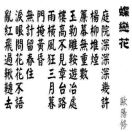 蝶戀花
歐陽修
庭院深深深幾許
楊柳堆煙
簾幕無重數
玉勒雕鞍遊冶處
樓高不見章台路
雨橫風狂三月暮
門掩黃昏
無計留春住
淚眼問花花不語
亂紅飛過鞦韆去